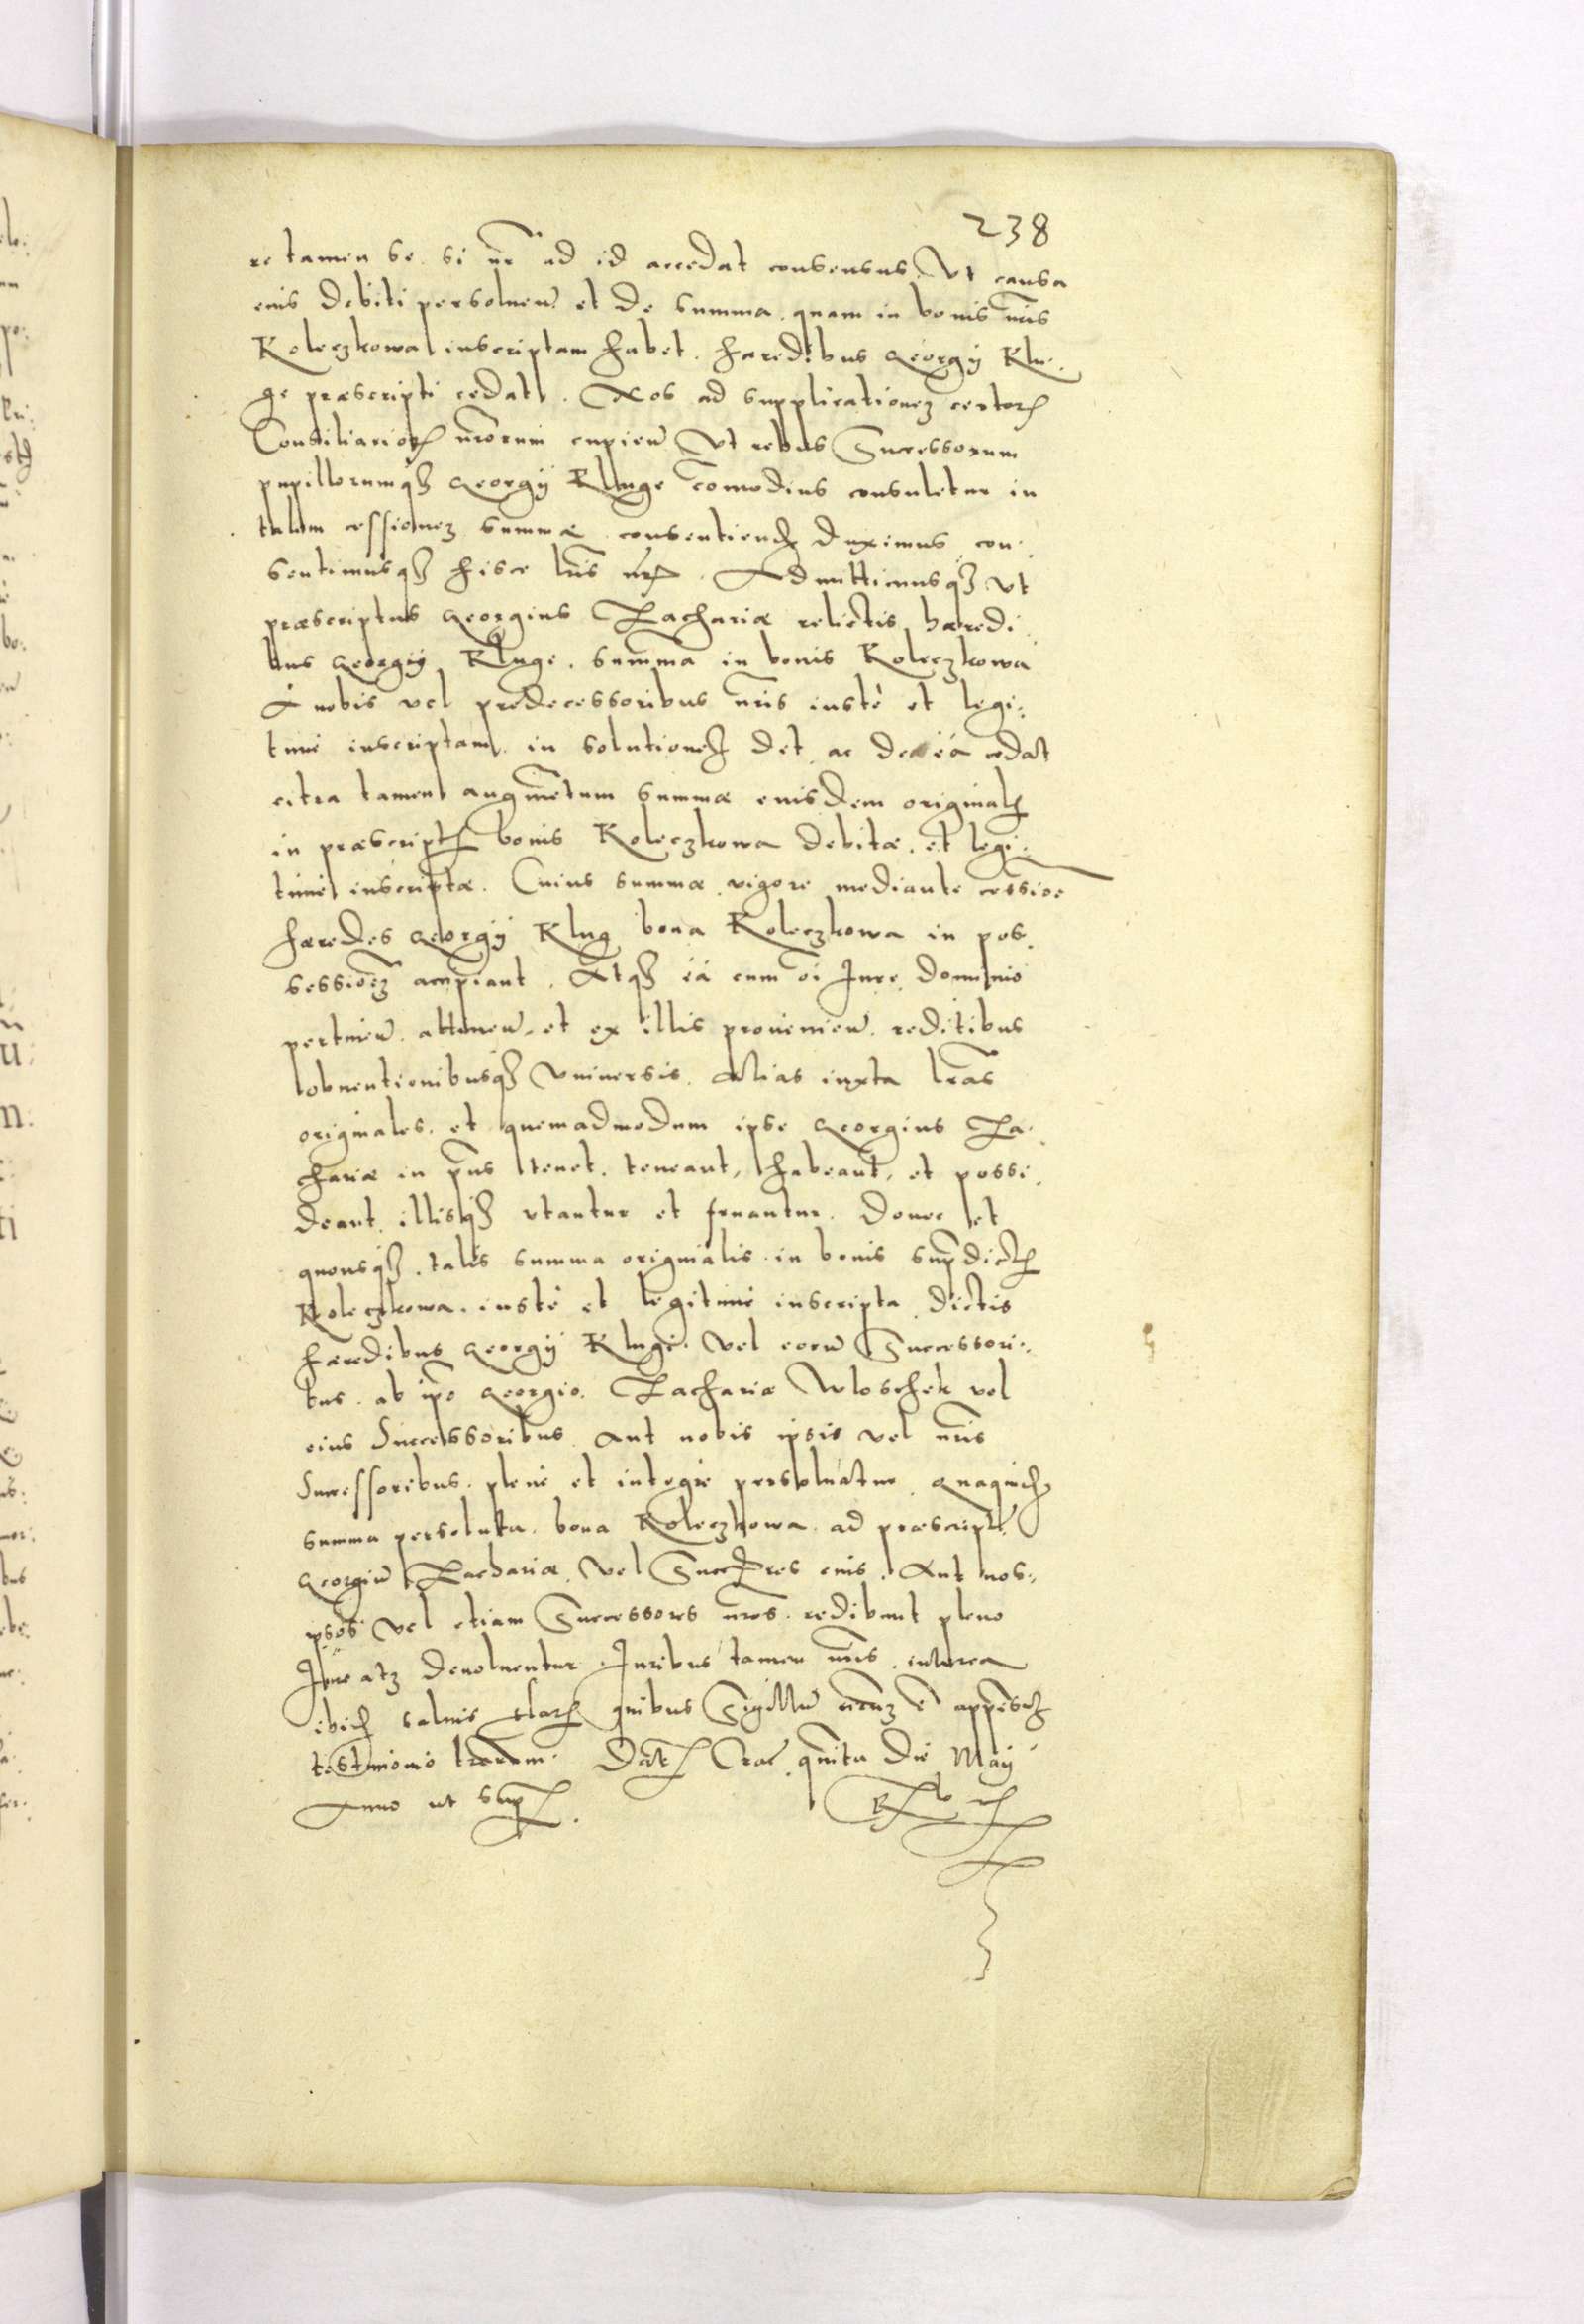 238
re tamen se si nr̄ ad id accedat consensus. Vt causa
eius debiti persoluen̄ et de summa quam in bonis nr̄is
Koleczkowa inscriptam habet. haeredibus Georgij Klu-
ge præscripti cedat. Nos ad supplicationeʒ certorꝝ
Consiliariorꝝ nr̄orum cupien̄ Vt rebus Successorum
pupillorumqꝫ Georgij Kluge com̄odius consuletur in
talem cessioneʒ summæ consentiendꝫ duximus con-
sentimusqꝫ hisce lr̄is nr̄is. Admittimusqꝫ vt
præscriptus Georgius Zachariæ relictis hæredi
bus Georgij Kluge. summa in bonis Koleczkowa
A nobis vel predecessoribus nr̄is iustè et legi:
timè inscriptam in solutioneʒ det ac de ea cedat
citra tamen augmētum summæ eiusdem originalꝭ
in præscriptꝭ bonis Koleczkowa debitæ. et legi:
timè inscriptæ. Cuius summæ vigore mediante cessioē
hæredes Georgij Klug bona Koleczkowa in pos
sessiōeʒ accipiant. Atqꝫ ea cum oī Jure dominio
pertinen̄. attinen̄. et ex illis prouenien̄. reditibus
obuentionibusqꝫ vniuersis. Alias iuxta lr̄as
originales. et quemadmodum ipse Georgius Za-
chariæ in pn̄s tenet. teneant, habeant, et possi
deant. illisqꝫ vtantur et fruantur. Donec et
quousqꝫ. talis summa originalis in bonis sup̄dictꝭ
Koleczkowa. iustè et legitimè inscripta dictis
hæredibus Georgij Kluge. vel eorū Successori:
bus. ab ip̄o Georgio. Zachariæ Wloschek vel
eius Successoribus Aut nobis ipsis vel nr̄is
Successoribus. plenè et integrè persoluatur. Quaquidꝫ
summa persoluta. bona Koleczkowa ad præscript.
Georgiū Zachariæ Vel Successores eius. Aut nos
ipsos vel etiam Successores nr̄os. redibunt pleno
Jure atqꝫ deuoluentur. Juribus tamen nr̄is interea
ibidꝫ saluis quibus Sigillū nr̄um ē appensꝫ
testimonio lr̄arum. Datꝭ Crac̄ quinta die Maij
Anno ut supꝭ.